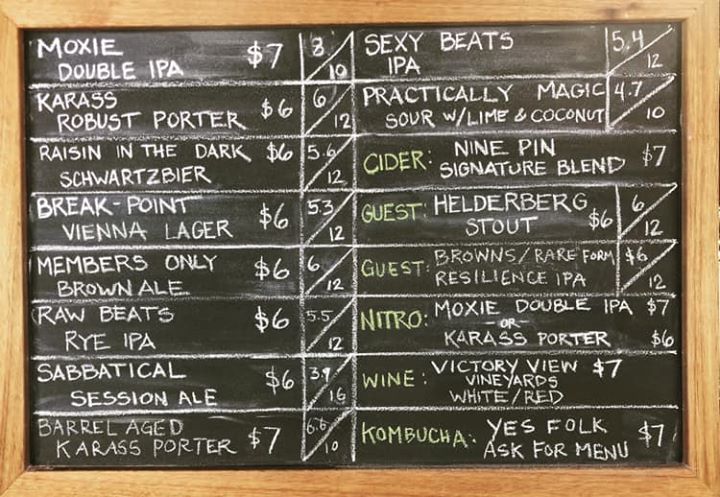 MOXIE
DOUBLE IPA
$7
8/10
KARASS
ROBUST PORTER
$6
6/12
RAISIN IN THE DARK
SCHWARTZBIER
$6
5.6/12
BREAK-POINT
VIENNA LAGER
$6
5.3/12
MEMBERS ONLY
BROWN ALE
$6
6/12
RAW BEATS
RYE IPA
$6
5.5/12
SABBATICAL
SESSION ALE
$6
3.9/16
BARREL AGED
KARASS PORTER
$7
6.6/10
SEXY BEATS
IPA
5.4/12
PRACTICALLY MAGIC
SOUR W/LIME & COCONUT
4.7/10
CIDER: NINE PIN
SIGNATURE BLEND
$7
GUEST: HELDERBERG
STOUT
$6
6/12
GUEST: BROWNS/RARE FORM
RESILIENCE IPA
$6/12
NITRO: MOXIE DOUBLE IPA $7
-OR-
KARASS PORTER $6
WINE: VICTORY VIEW $7
VINEYARDS
WHITE/RED
KOMBUCHA: YES FOLK
ASK FOR MENU
$7